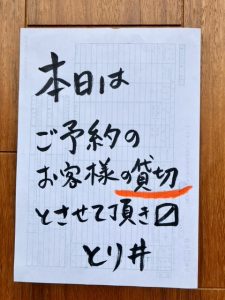 本日は
ご予約の
お客様の貸切
とさせて頂き〼
とり井